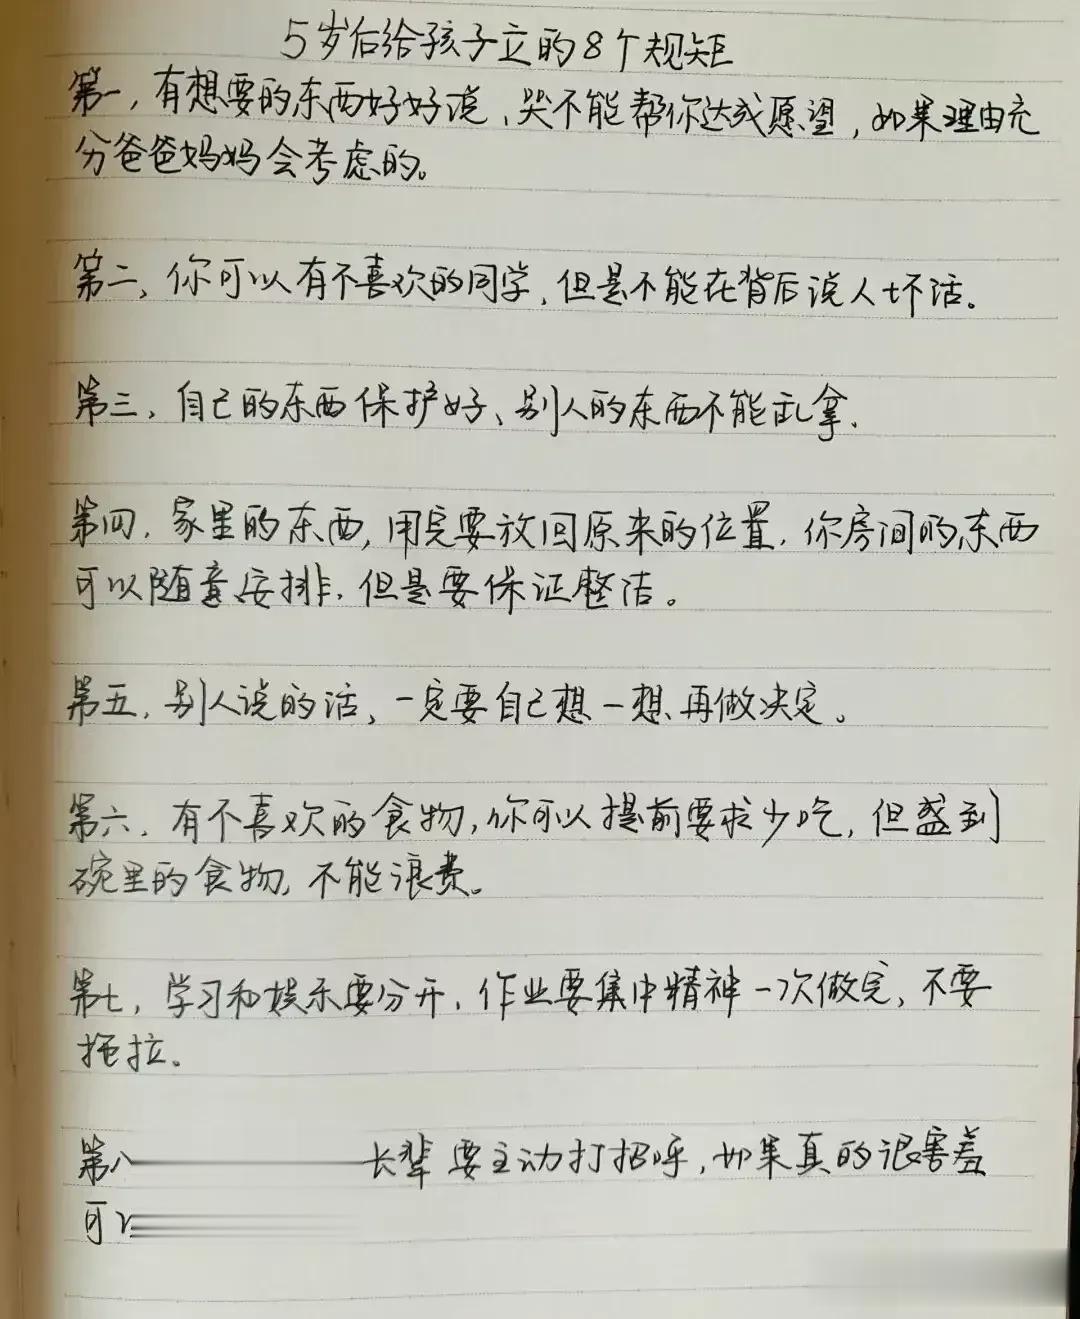 5岁后给孩子立的8个规矩
第一,有想要的东西好好说、哭不能帮你达成愿望,如果理由充
分爸爸妈妈会考虑的。
第二、你可以有不喜欢的同学、但是不能在背后说人坏话。
第三、自己的东西保护好、别人的东西不能乱拿.
第四.家里的东西,用完要放回原来的位置.你房间的东西
可以随意安排.但是要保证整洁。
第五.别人说的话、一定要自己想一想、再做决定。
第六.有不喜欢的食物,你可以提前要求少吃,但盛到
碗里的食物,不能浪费。
第七,学习和娱乐要分开.作业要集中精神一次做完,不要
拖拉。
第八 长辈要主动打招呼,如果真的很害羞
可